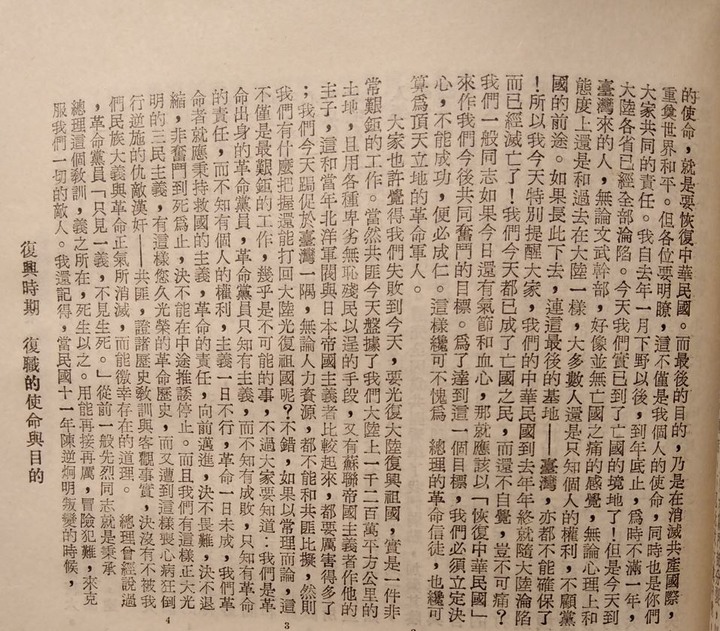 的使命，就是要恢復中華民國。而最後的目的，乃是在消滅共產國際，
重奠世界和平。但各位要明瞭，這不僅是我個人的使命，同時也是你們
大家共同的責任。我自去年一月下野以後，到年底止，為時不滿一年，
大陸各省已經全部淪陷。今天我們實已到了亡國的境地了！但是今天到
臺灣來的人，無論文武幹部，好像並無亡國之痛的感覺，無論心理上和
態度上還是和過去在大陸一樣，大多數人還是只知個人的權利，不顧黨
國的前途。如果長此下去，連這最後的基地——臺灣，亦都不能確保了
！所以我今天特別提醒大家，我們的中華民國到去年年終就隨大陸淪陷
而已經滅亡了！我們今天都已成了亡國之民，而還不自覺，豈不可痛？
我們一般同志如果今日還有氣節和血心，那就應該以「恢復中華民國」
來作我們今後共同奮鬥的目標。為了達到這一個目標，我們必須立定決
心，不能成功，便必成仁。這樣纔可不愧為　總理的革命信徒，也纔可
算為頂天立地的革命軍人。
大家也許覺得我們失敗到今天，要光復大陸復興祖國，實是一件非
常艱鉅的工作。當然共匪今天盤據了我們大陸上一千二百萬平方公里的
土地，且用各種卑劣無恥殘民以逞的手段，又有蘇聯帝國主義者作他的
主子，這和當年北洋軍閥與日本帝國主義者比較起來，都要厲害得多了
；我們今天跼促於臺灣一隅，無論人力資源，都不能和共匪比擬，然則
我們有什麼把握還能打回大陸光復祖國呢？不錯，如果以常理而論，這
不僅是最艱鉅的工作，幾乎是不可能的事，不過大家要知道：我們是革
命出身的革命黨員，革命黨員只知有主義，而不知有成敗，只知有革命
的責任，而不知有個人的權利，主義一日不行，革命一日未成，我們革
命者就應秉持救國的主義，革命的責任，向前邁進，決不畏難，決不退
縮，非奮鬥到死為止，決不能在中途推諉停止。而且我們有這樣正大光
明的三民主義，有這樣悠久光榮的革命歷史，而又遭到這樣喪心病狂倒
行逆施的仇敵漢奸——共匪，證諸歷史教訓與客觀事實，決沒有不被我
們民族大義與革命正氣所消滅，而能徼幸存在的道理。　總理曾經說過
，革命黨員「只見一義，不見生死。」從前一般先烈同志就是秉承
總理這個教訓，義之所在，死生以之。用能再接再厲，冒險犯難，來克
服我們一切的敵人。我還記得，當民國十一年陳逆炯明叛變的時候，
復興時期　復職的使命與目的
3
4